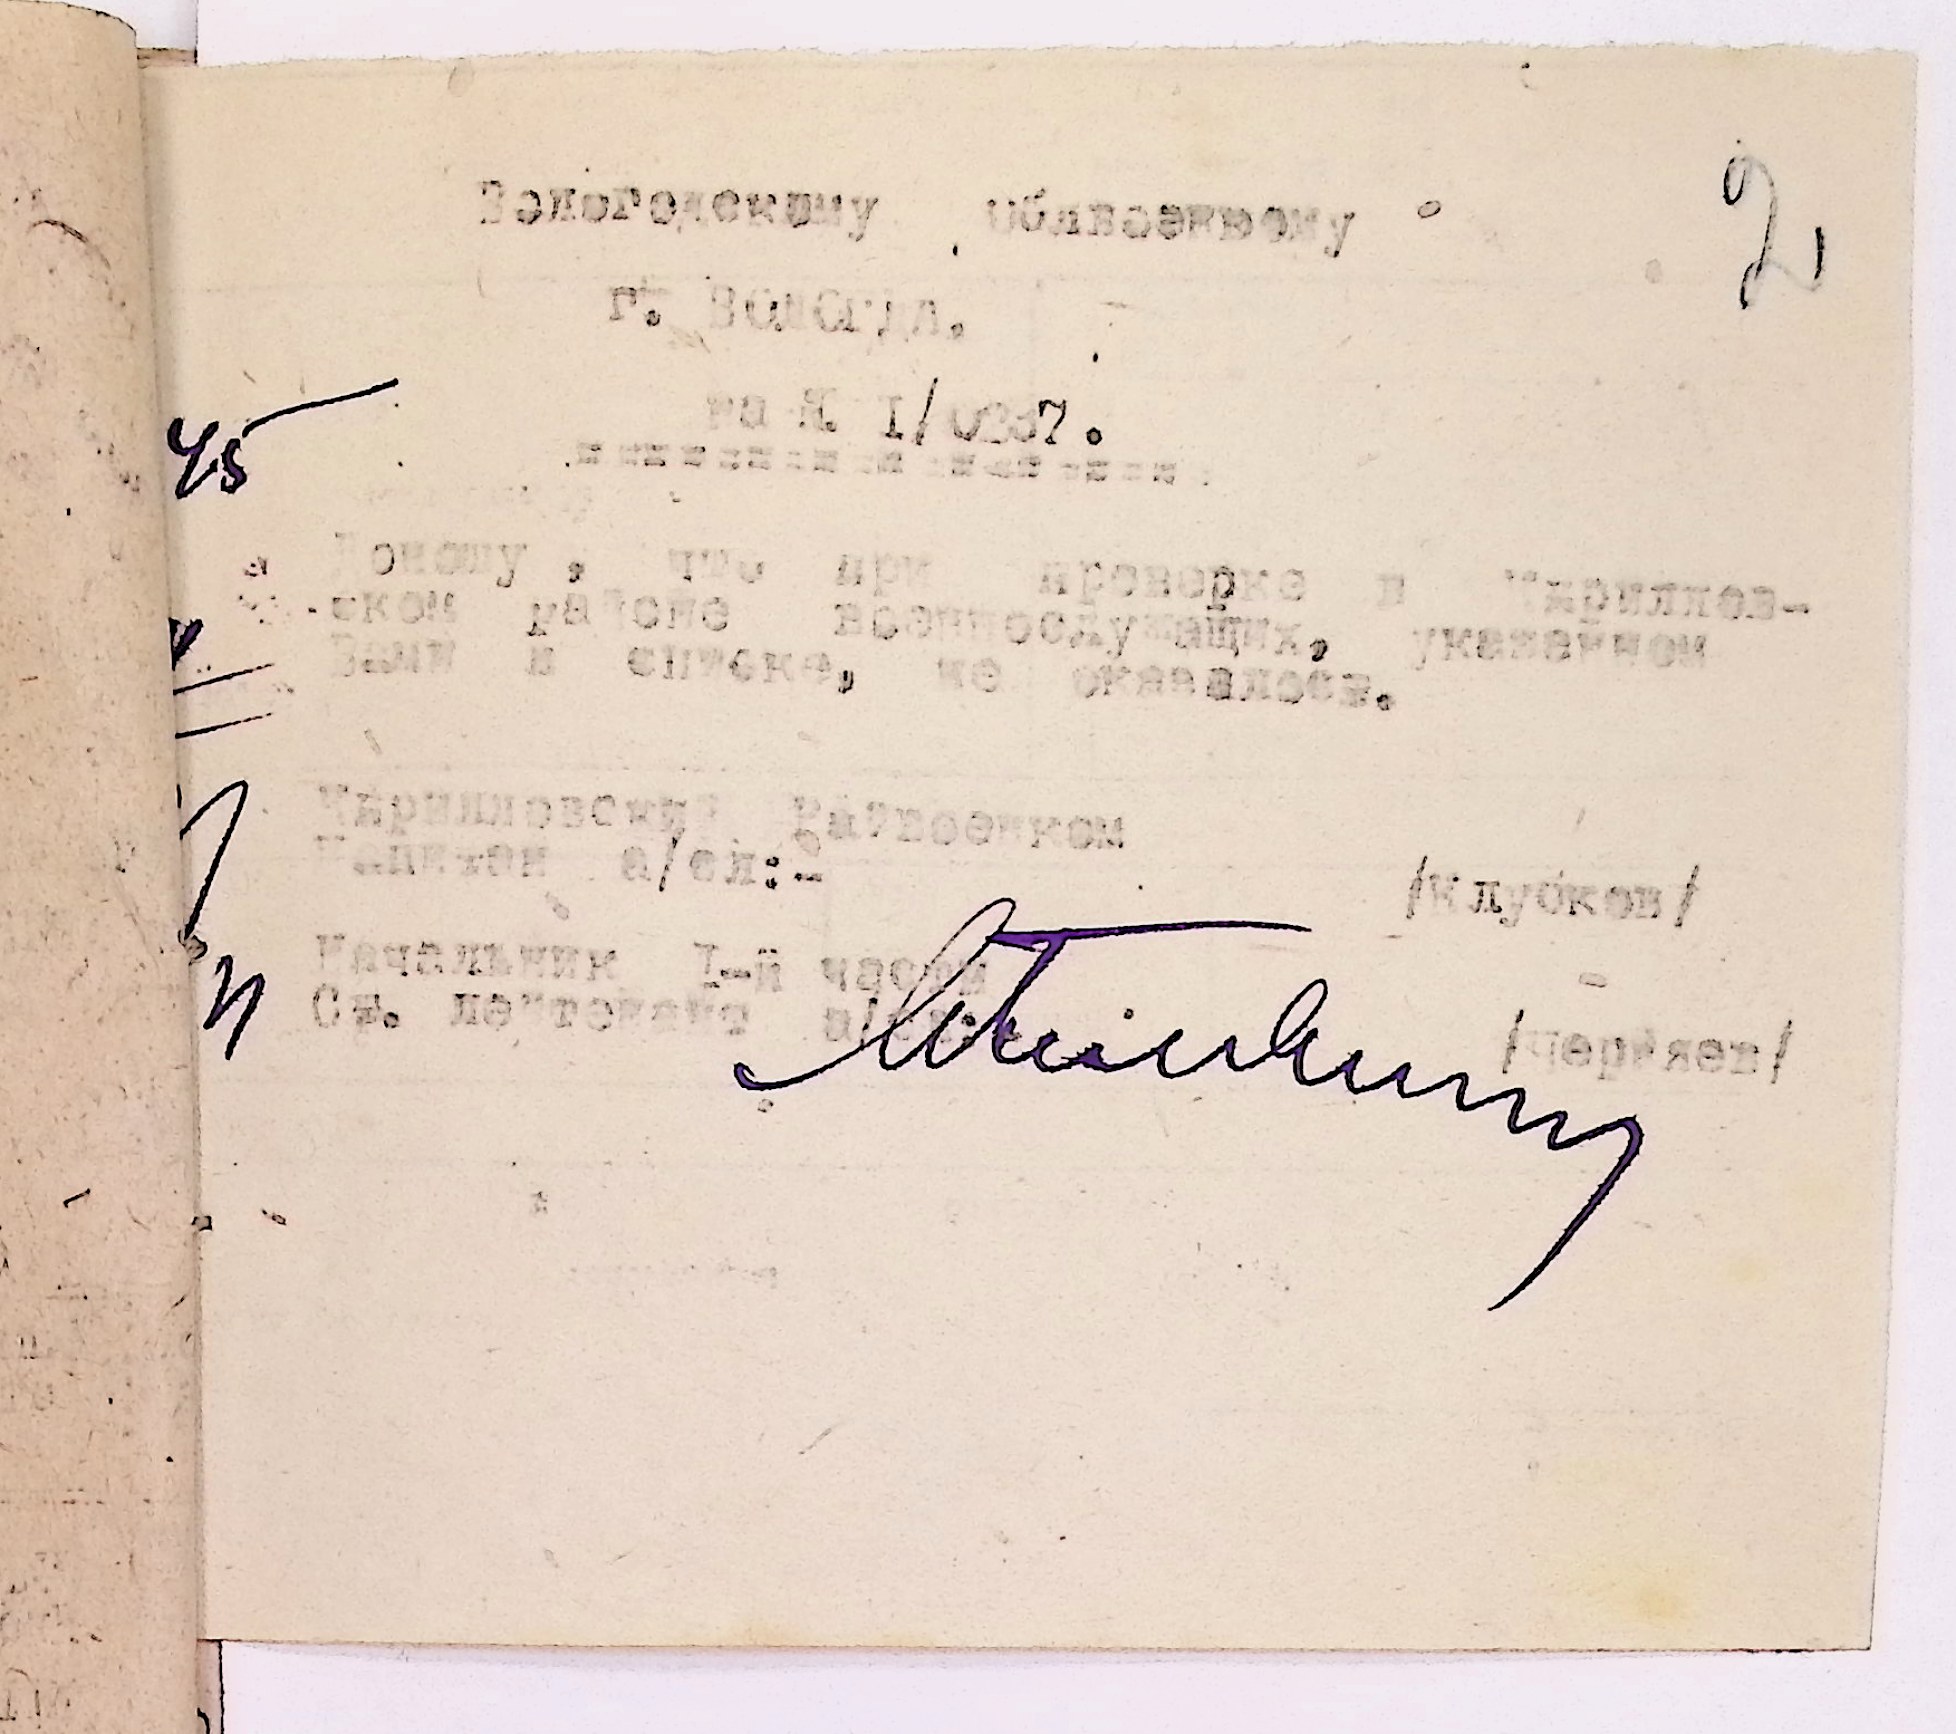 2
Вологодскому Облвоенкому
г. ВОЛОГДА.
на № I/0237.
45
Доношу, что при проверке в Кириллов-
ском районе военнослужащих, указанном
Вами в списке, не оказалось.
Кирилловский Райвоенком
Капитан а/сл:-
/Клубков/
Начальник I-й части
Ст. лейтенант а/сл:-